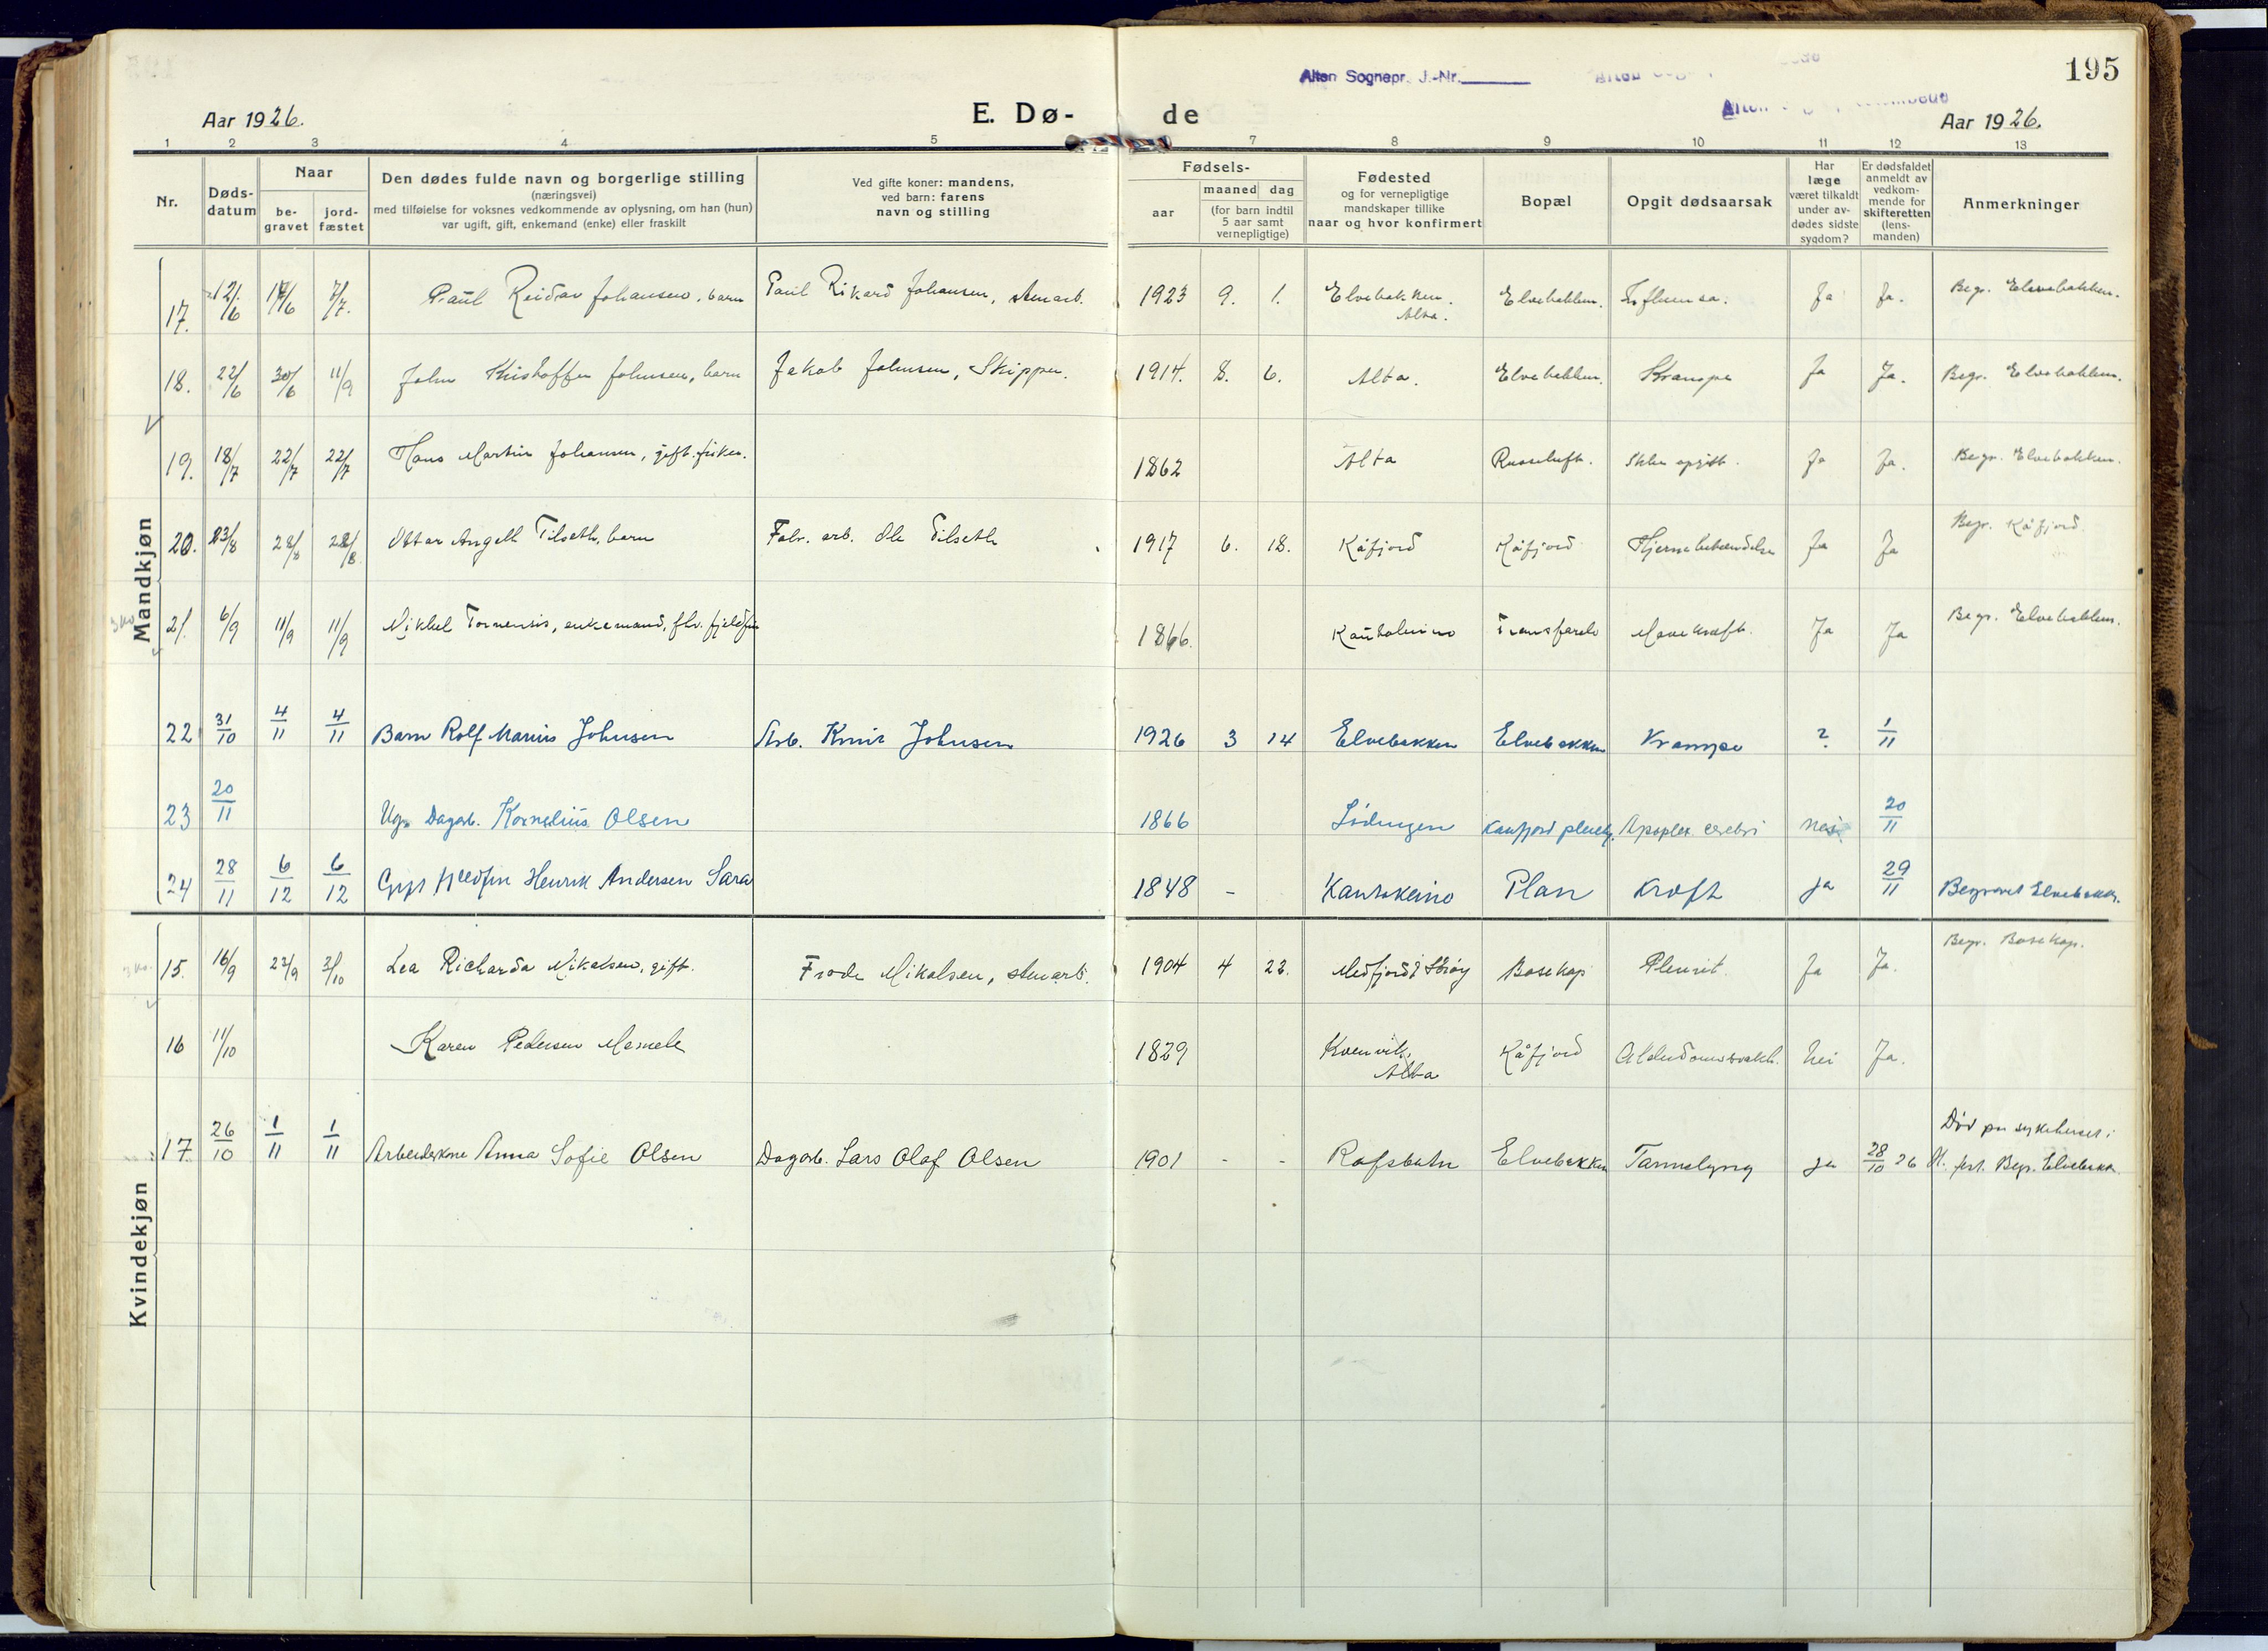 Alten Sognepr. J.-Nr.
195
Aar 1926.
E. Dø-
de
Aar 1926.
1 2 3 4 5 7 8 9 10 11 12 13
Nr.
Døds-
datum
Naar
be-
gravet
jord-
fæstet
Den dødes fulde navn og borgerlige stilling
(næringsvei)
med tilføielse for voksnes vedkommende av oplysning, om han (hun)
var ugift, gift, enkemand (enke) eller fraskilt
Ved gifte koner: mandens,
ved barn: farens
navn og stilling
Fødsels-
aar
maaned dag
(for barn indtil
5 aar samt
vernepligtige)
Fødested
og for vernepligtige
mandskaper tillike
naar og hvor konfirmert
Bopæl
Opgit dødsaarsak
Har
læge
været tilkaldt
under av-
dødes sidste
sygdom?
Er dødsfaldet
anmeldt av
vedkom-
mende for
skifteretten
(lens-
manden)
Anmerkninger
Mandkjøn
17. 12/6 7/7. Paul Reidar Johansen, barn Paul Rikard Johansen, 1923 9. 1. Elvebakken. Alta. Elvebakken. Influensa. Ja Ja. Begr. Elvebakken.
18. 22/6 30/6 11/9 John Kristoffer Johnsen, barn Jakob Johnsen, Skipper. 1914. 8. 6. Alta. Elvebakken. Krampe Ja Ja. Begr. Elvebakken.
19. 18/7 22/7 22/7 Hans Martin Johansen, gift. fisker. 1862 Alta Russeluft. Ikke opgitt. Ja Ja. Begr. Elvebakken.
20. 23/8 28/8 28/8 Ottar Angell Tilseth, barn Fabr. arb. Ole Tilseth 1917 6. 18. Kåfjord Kåfjord Hjernebetændelse Ja Ja Begr. Kåfjord.
21. 6/9 11/9 11/9 Mikkel Tornensis, enkemand, fhv. fjeldfin 1866. Kautokeino Mavekræft. Ja Ja Begr. Elvebakken.
22 31/10 4/11 4/11 Barn Rolf Marius Johnsen Arb. Johnsen 1926 3 14 Elvebakken Elvebakken Krampe ? 1/11
23 20/11 Ug. Dagarb. Kornelius Olsen 1866 Lødingen Kaafjord pleiehj. Apoplex. cerebri nei. 20/11
24 28/11 6/12 6/12 Gift fjeldfin Henrik Andersen Sara 1848 - Kautokeino Plan Kræft ja 29/11 Begravet Elvebakk.
Kvindekjøn
15. 16/9 23/9 3/10 Lea Richarda Mikalsen, gift. Frode Mikalsen, 1904 4 23. Medfjord Bosekop Pleurit. Ja Ja. Begr. Bosekop.
16 11/10 Karen Pedersen 1829 Kvenvik, Alta Kåfjord Alderdomssvakh. Nei Ja.
17 26/10 1/11 1/11 Arbeiderkone Anna Sofie Olsen Dagarb. Lars Olaf Olsen 1901 - - Rafsbotn Elvebakken ja 28/10 26 Død paa sykehuset i H.fest. Begr. Elvebakk.